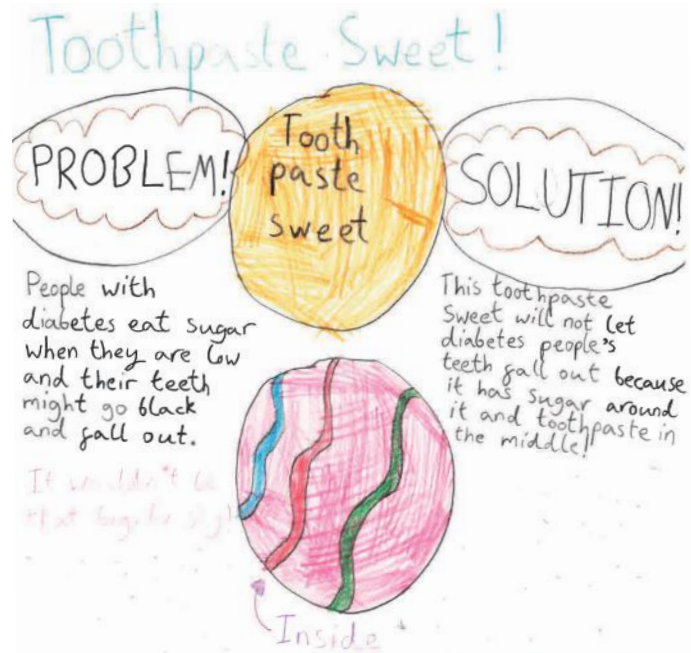 Toothpaste Sweet!
PROBLEM!
Tooth
paste
sweet
SOLUTION!
People with
diabetes eat sugar
when they are low
and their teeth
might go black
and fall out.
It wouldn't be
that big
This toothpaste
Sweet will not let
diabetes people's
teeth fall out because
it has sugar around
it and toothpaste in
the middle!
Inside